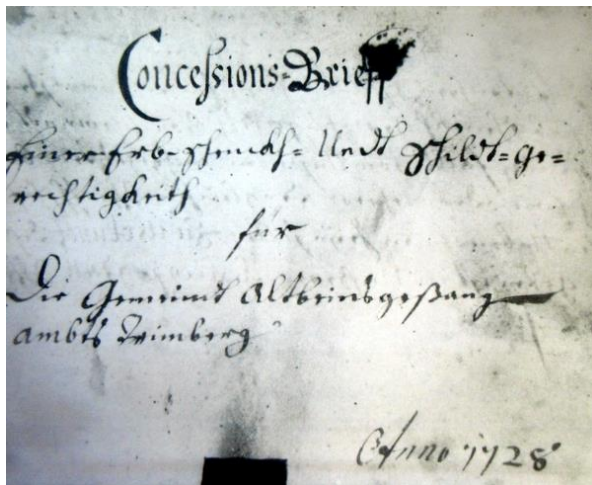 Concessions-Brieff
Einer Erb-schenckh- Undt Schildt-ge=
rechtigkeith
für
Die Gemeindt Altbeinsgeßang
ambts Trimberg
Anno 1728